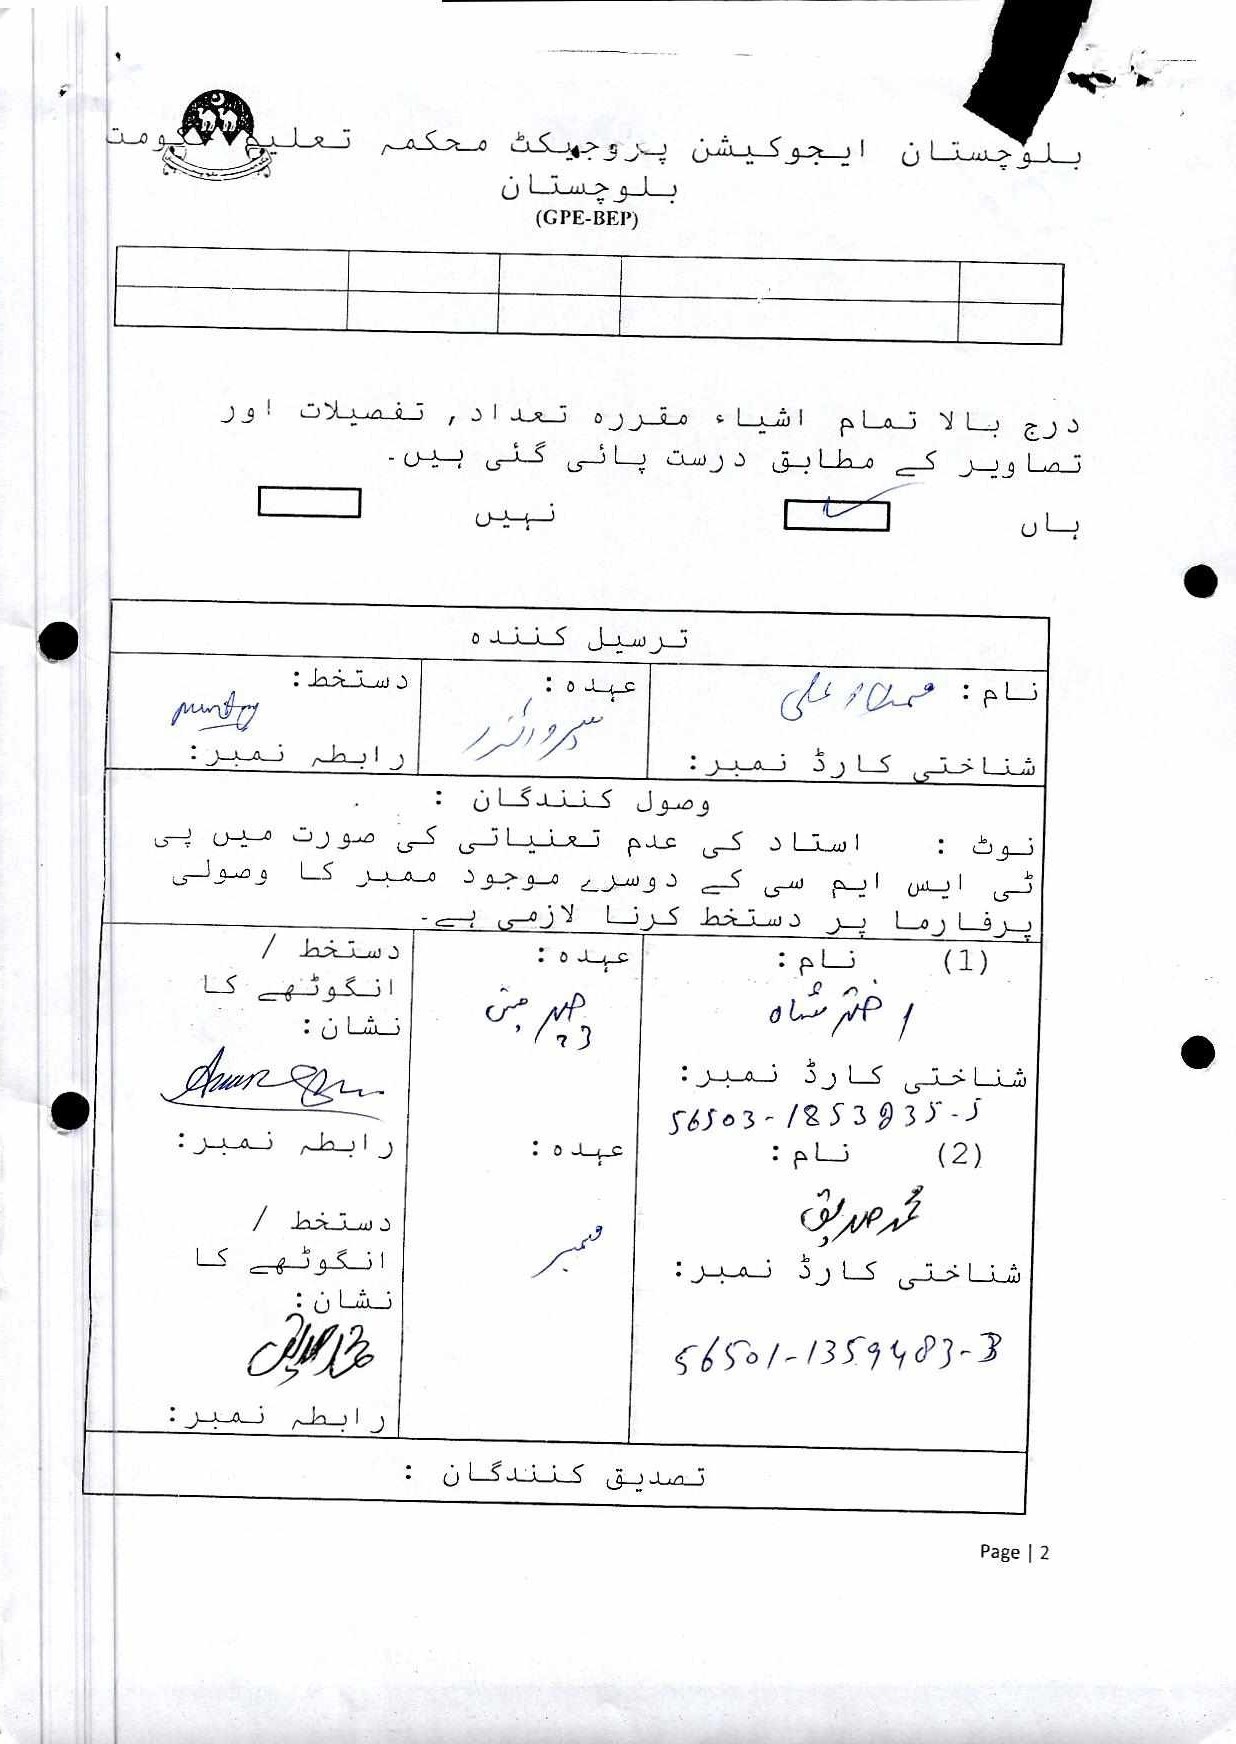 بلوچستان ایجوکیشن پروجیکٹ محکمہ تعلیم حکومت
بلوچستان
(GPE-BEP)
درج بالا تمام اشیاء مقررہ تعداد, تفصیلات اور
تصاویر کے مطابق درست پائی گئی ہیں۔
ہاں نہیں
ترسیل کنندہ
نام: علی عہدہ: دستخط:
سپروائزر
شناختی کارڈ نمبر: رابطہ نمبر:
وصول کنندگان :
نوٹ : استاد کی عدم تعنیاتی کی صورت میں پی
ٹی ایس ایم سی کے دوسرے موجود ممبر کا وصولی
پرفارما پر دستخط کرنا لازمی ہے۔
(1) نام: عہدہ: دستخط /
انگوٹھے کا
نشان:
اختر شاہ
شناختی کارڈ نمبر:
56503-1853835-5
رابطہ نمبر:
(2) نام: عہدہ:
محمد صدیق ممبر
دستخط /
انگوٹھے کا
نشان:
شناختی کارڈ نمبر:
محمد صدیق
56501-1359483-3
رابطہ نمبر:
تصدیق کنندگان :
Page | 2